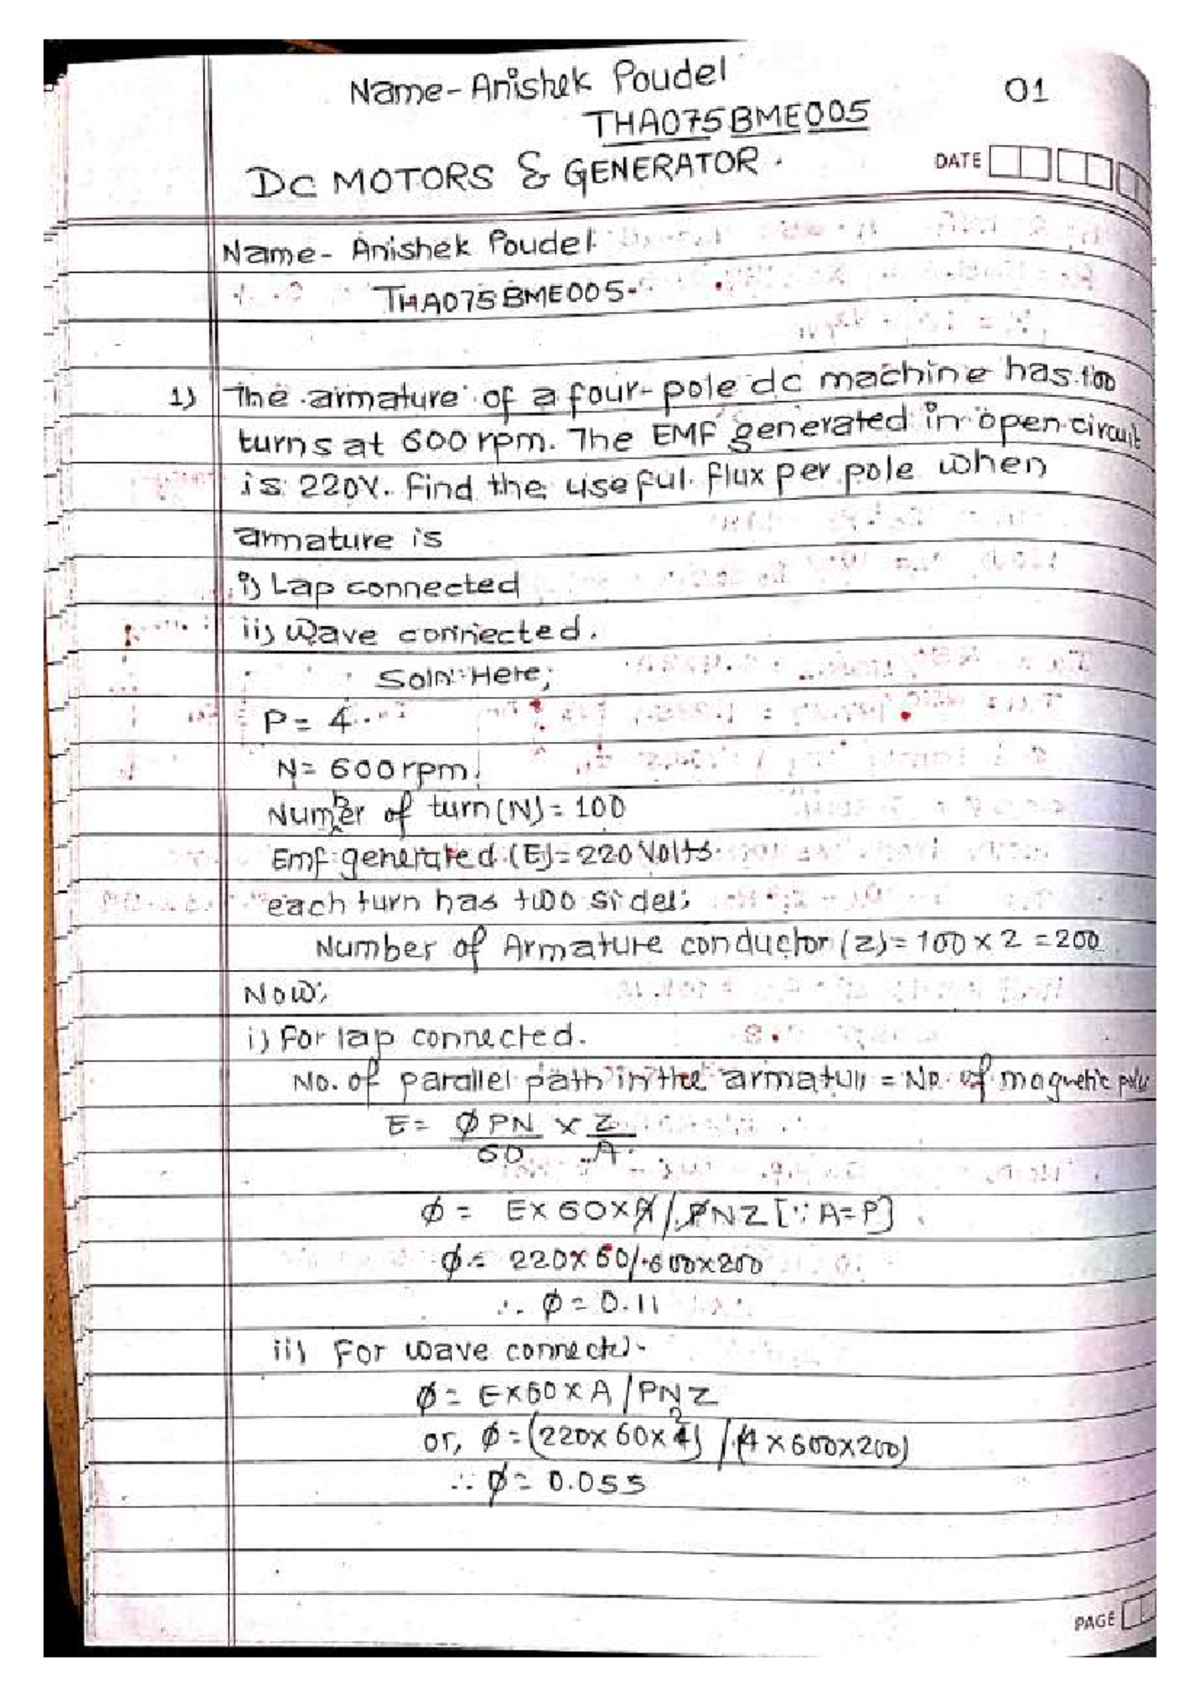 Name- Anishek Poudel
01
THA075BME005
DATE
DC MOTORS & GENERATOR.
Name- Anishek Poudel
THA075BME005.
1) The armature of a four-pole dc machine has 100
turns at 600 rpm. The EMF generated in open circuit
is 220V. Find the useful flux per pole when
armature is
i) Lap connected
ii) Wave connected.
Soln: Here;
P = 4
N = 600rpm.
Number of turn (N) = 100
Emf generated (E) = 220 Volts.
each turn has two sides;
Number of Armature conductor (z) = 100 x 2 = 200
Now;
i) For lap connected.
No. of parallel path in the armature = No. of magnetic pole
E = ØPN/60 x Z/A
Ø = Ex60xA/PNZ [∵ A=P]
Ø = 220x60/600x200
∴ Ø = 0.11
ii) For wave connected.
Ø = Ex60xA/PNZ
or, Ø = (220x60x2) / (4x600x200)
∴ Ø = 0.055
PAGE